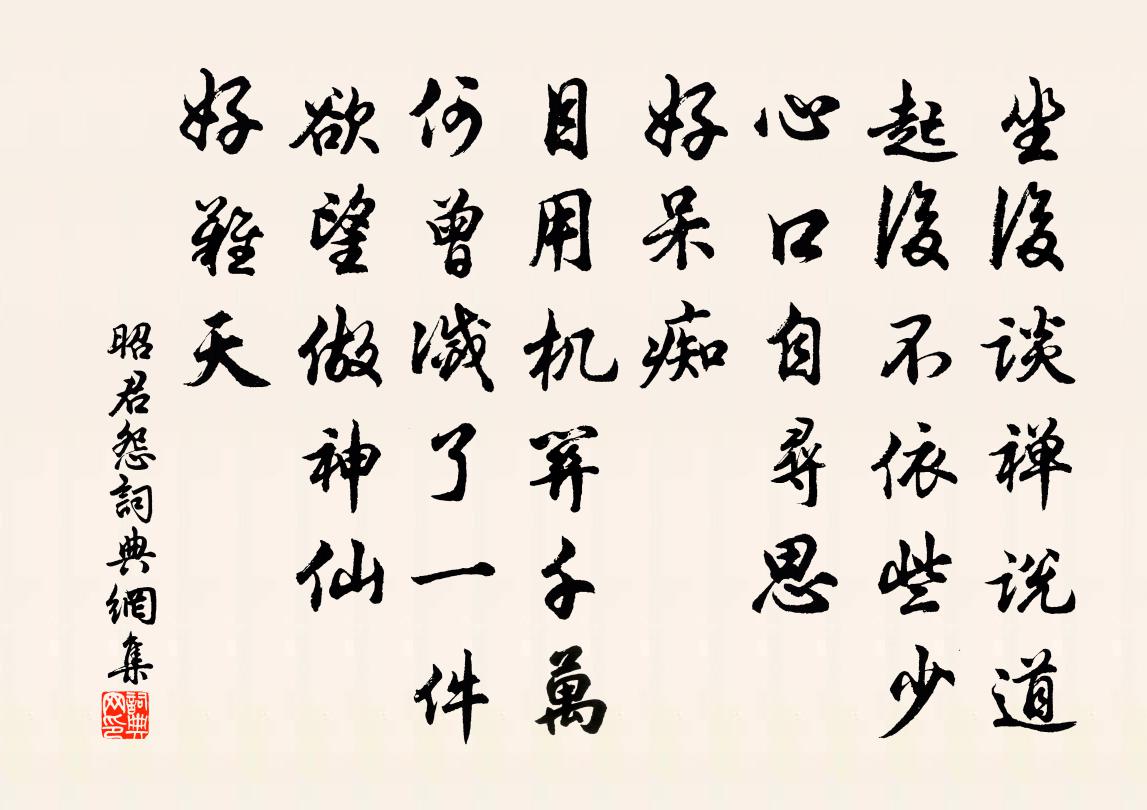 坐後谈禅说道
起後不依些少
心口自尋思
好呆痴
目用机筭千萬
何曾滅了一件
欲望做神仙
好難天
昭君怨詞典網集
詞典网印